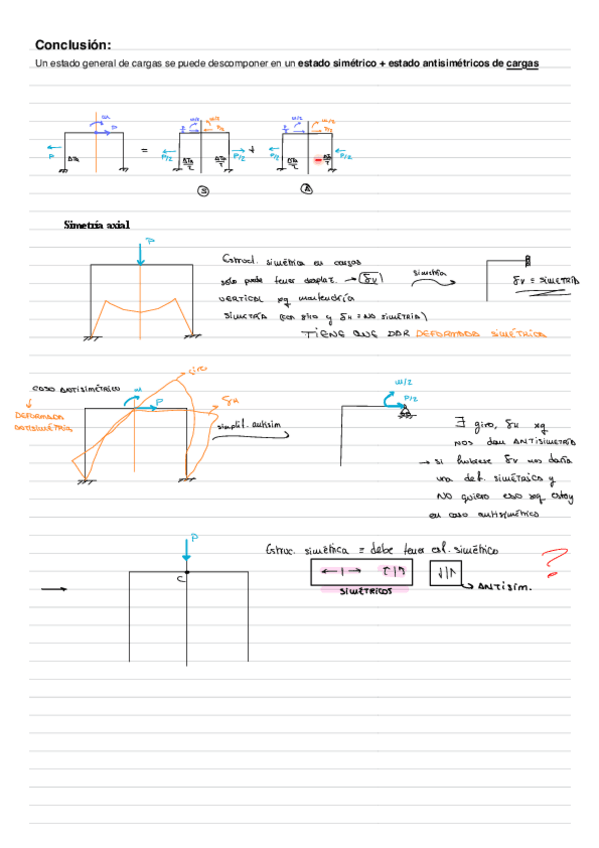 Conclusión:
Un estado general de cargas se puede descomponer en un estado simétrico + estado antisimétricos de cargas
= +
P P/2 P/2 P/2 P/2
S A
Simetría axial
P
Estruct. simétrica en cargas
solo puede tener desplaz. → δv
simetría
δv = SIMETRÍA
VERTICAL xq mantendría
SIMETRÍA (con giro y δH = NO SIMETRÍA)
TIENE QUE DAR DEFORMADA SIMÉTRICA
giro
CASO ANTISIMÉTRICO
DEFORMADA
ANTISIMETRÍA
P
δH
simplif. antisim
M/2
P/2
∃ giro, δH xq
NOS dan ANTISIMETRÍA
→ si hubiese δv nos daría
una def. simétrica y
NO quiero eso xq estoy
en caso antisimétrico
P
C
Estruc. simétrica = debe tener esf. simétrico
SIMÉTRICOS
ANTISIM.
?